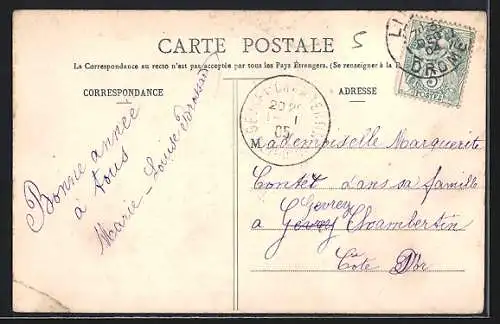 5
CARTE POSTALE
La Correspondance au recto n'est pas acceptée par tous les Pays Étrangers. (Se renseigner à la
CORRESPONDANCE
ADRESSE
DROME
POSTES
GEVREY-CHAMBERTIN
05
Bonne année
à tous
Marie-Louise
Mademoiselle Marguerite
Contet dans sa famille
Gevrey
à Gevrey Chambertin
Côte d'Or